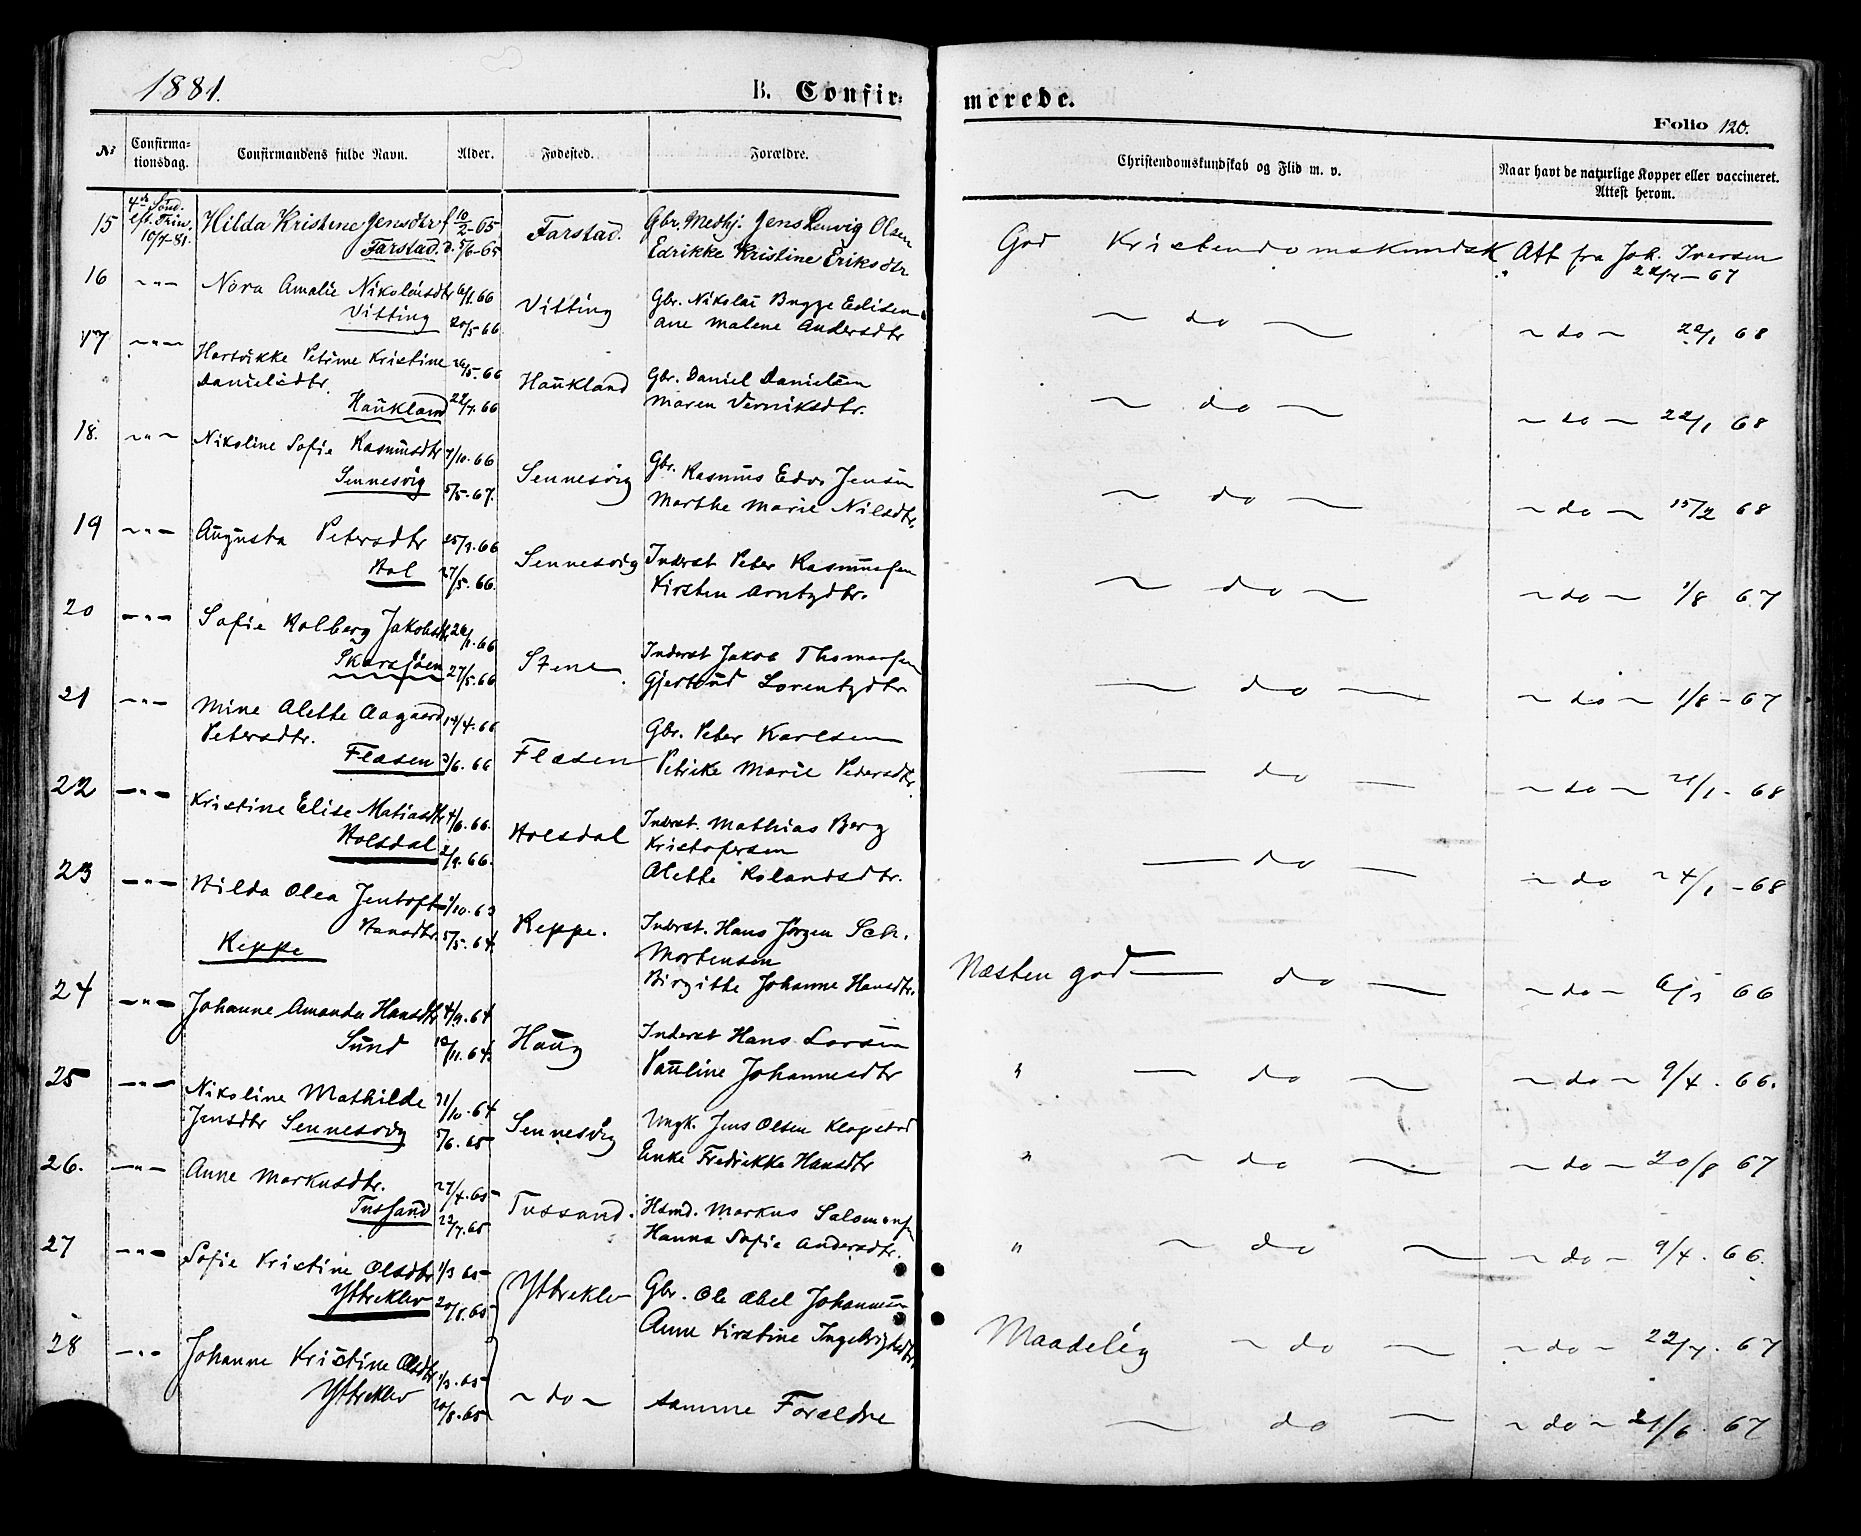 1881.
B. Confir=
merede.
Folio 120.
№
Confirma-
tionsdag.
Confirmandens fulde Navn.
Alder.
Fødested.
Forældre.
Christendomskundskab og Flid m. v.
Naar havt de naturlige Kopper eller vaccineret.
Attest herom.
15
4de Sønd.
eft. Trin.
10/7-81.
Hilda Kristine Jensdtr
Farstad.
f 10/2-65
d. 5/6-65
Farstad.
Gbr. Medhj. Jens Olsen
Edrikke Kristine Eriksdtr
God Kristendomskundsk.
Att fra Joh. Iversen
22/7-67
16
~"~
Nora Amalie Nikolaisdtr
Vitting
6/1.66
20/5 66.
Vitting
Gbr. Nikolai Bugge Edisen
Ane Malene Andersdtr
~ do ~
~ do ~ 22/1 68
17
~"~
Hartvikke Petrine Kristine
Danielsdtr.
Haukland
26/5-66
22/7.66
Haukland
Gbr. Daniel Danielsen
Maren Verniksdtr.
~ do ~
~ do ~ 22/1 68
18.
~"~
Nikoline Sofie Rasmusdtr
Sennesvig
7/10.66
5/5-67.
Sennesvig
Gbr. Rasmus Edv. Jensen
Marthe Marie Nilsdtr.
~ do ~
~ do ~ 15/2 68
19
~"~
Augusta Petersdtr
Hol
27/5.66.
Sennesvig
Inderst Peter Rasmussen
Kirsten Arntzdtr.
~ do ~
~ do ~ 1/8 67
20
~"~
Sofie Holberg Jakobsdtr
Skarsjøen
27/5.66
Stene
Inderst Jakob Thomassen
Gjertrud Lorentzdtr
~ do ~
~ do ~ 1/8-67
21
~"~
Mine Alette Aagaard
Petersdtr.
Flæsen
3/6.66
Flæsen
Gbr. Peter Karlsen
Petrike Marie Pedersdtr.
~ do ~
~ do ~ 21/1-68
22
~"~
Kristine Elise Matiasdtr
Holsdal
4/6.66.
2/9.66.
Holsdal
Inderst. Mathias Berg
Kristofersen
Alette Rolandsdtr.
~ do ~
~ do 24/1-68
23
~"~
Hilda Olea Jentoft
Hansdtr.
Reppe
5/5.64
Reppe.
Inderst. Hans Jørgen Sch.
Mortensen
Birgitte Johanne Hansdtr.
Næsten god ~ do ~
~ do ~ 66
24
~"~
Johanne Amanda Hansdtr
Sund
4/9.64
Haug
Inderst Hans Larsen
Pauline Johannesdtr
" ~ do ~
~ do ~ 9/4.66.
25
~"~
Nikoline Mathilde
Jensdtr Sennesvig
21/10.64
5/6.65
Sennesvig
Ungk. Jens Olsen Klopstad
Enke Fredrikke Hansdtr
" ~ do ~
~ do ~ 20/8 67
26.
~"~
Anne Markusdtr.
Tussand
27/4.65
22/7.65
Tussand.
Hsmd. Markus Salomonsen
Hanna Sofie Andersdtr.
" ~ do ~
~ do ~ 9/4.66.
27
~"~
Sofie Kristine Olsdtr
Yttreklev
1/3 65
20/8.65
Yttreklev
Gbr. Ole Abel Johannesen
Anne Kirstine Ingebrigtsdtr.
Maadelig ~ do ~
~ do ~ 22/7.67
28
~"~
Johanne Kristine Olsdtr
Yttreklev
1/3.65
20/8.65
~ do ~
samme Forældre
~ do ~
~ do ~ 21/6.67